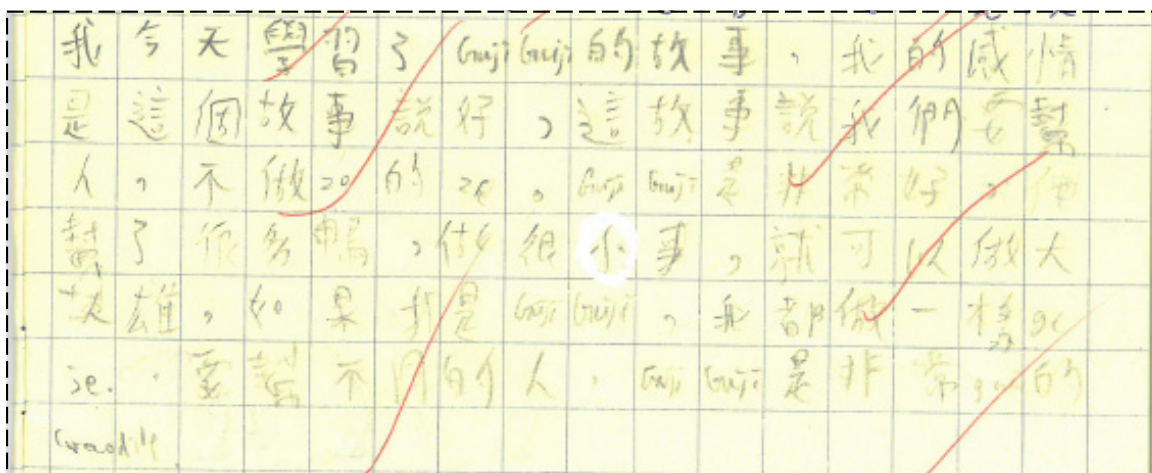 我今天學習了 Guji Guji 的故事。我的感情
是這個故事說好,這故事說我們要幫
人,不做 的 。Guji Guji 是非常好。他
幫了很多鴨,做很小事,就可以做大
英雄。如果我是 Guji Guji,我都做一樣
要幫不同的人。Guji Guji 是非常 的
Crocodile